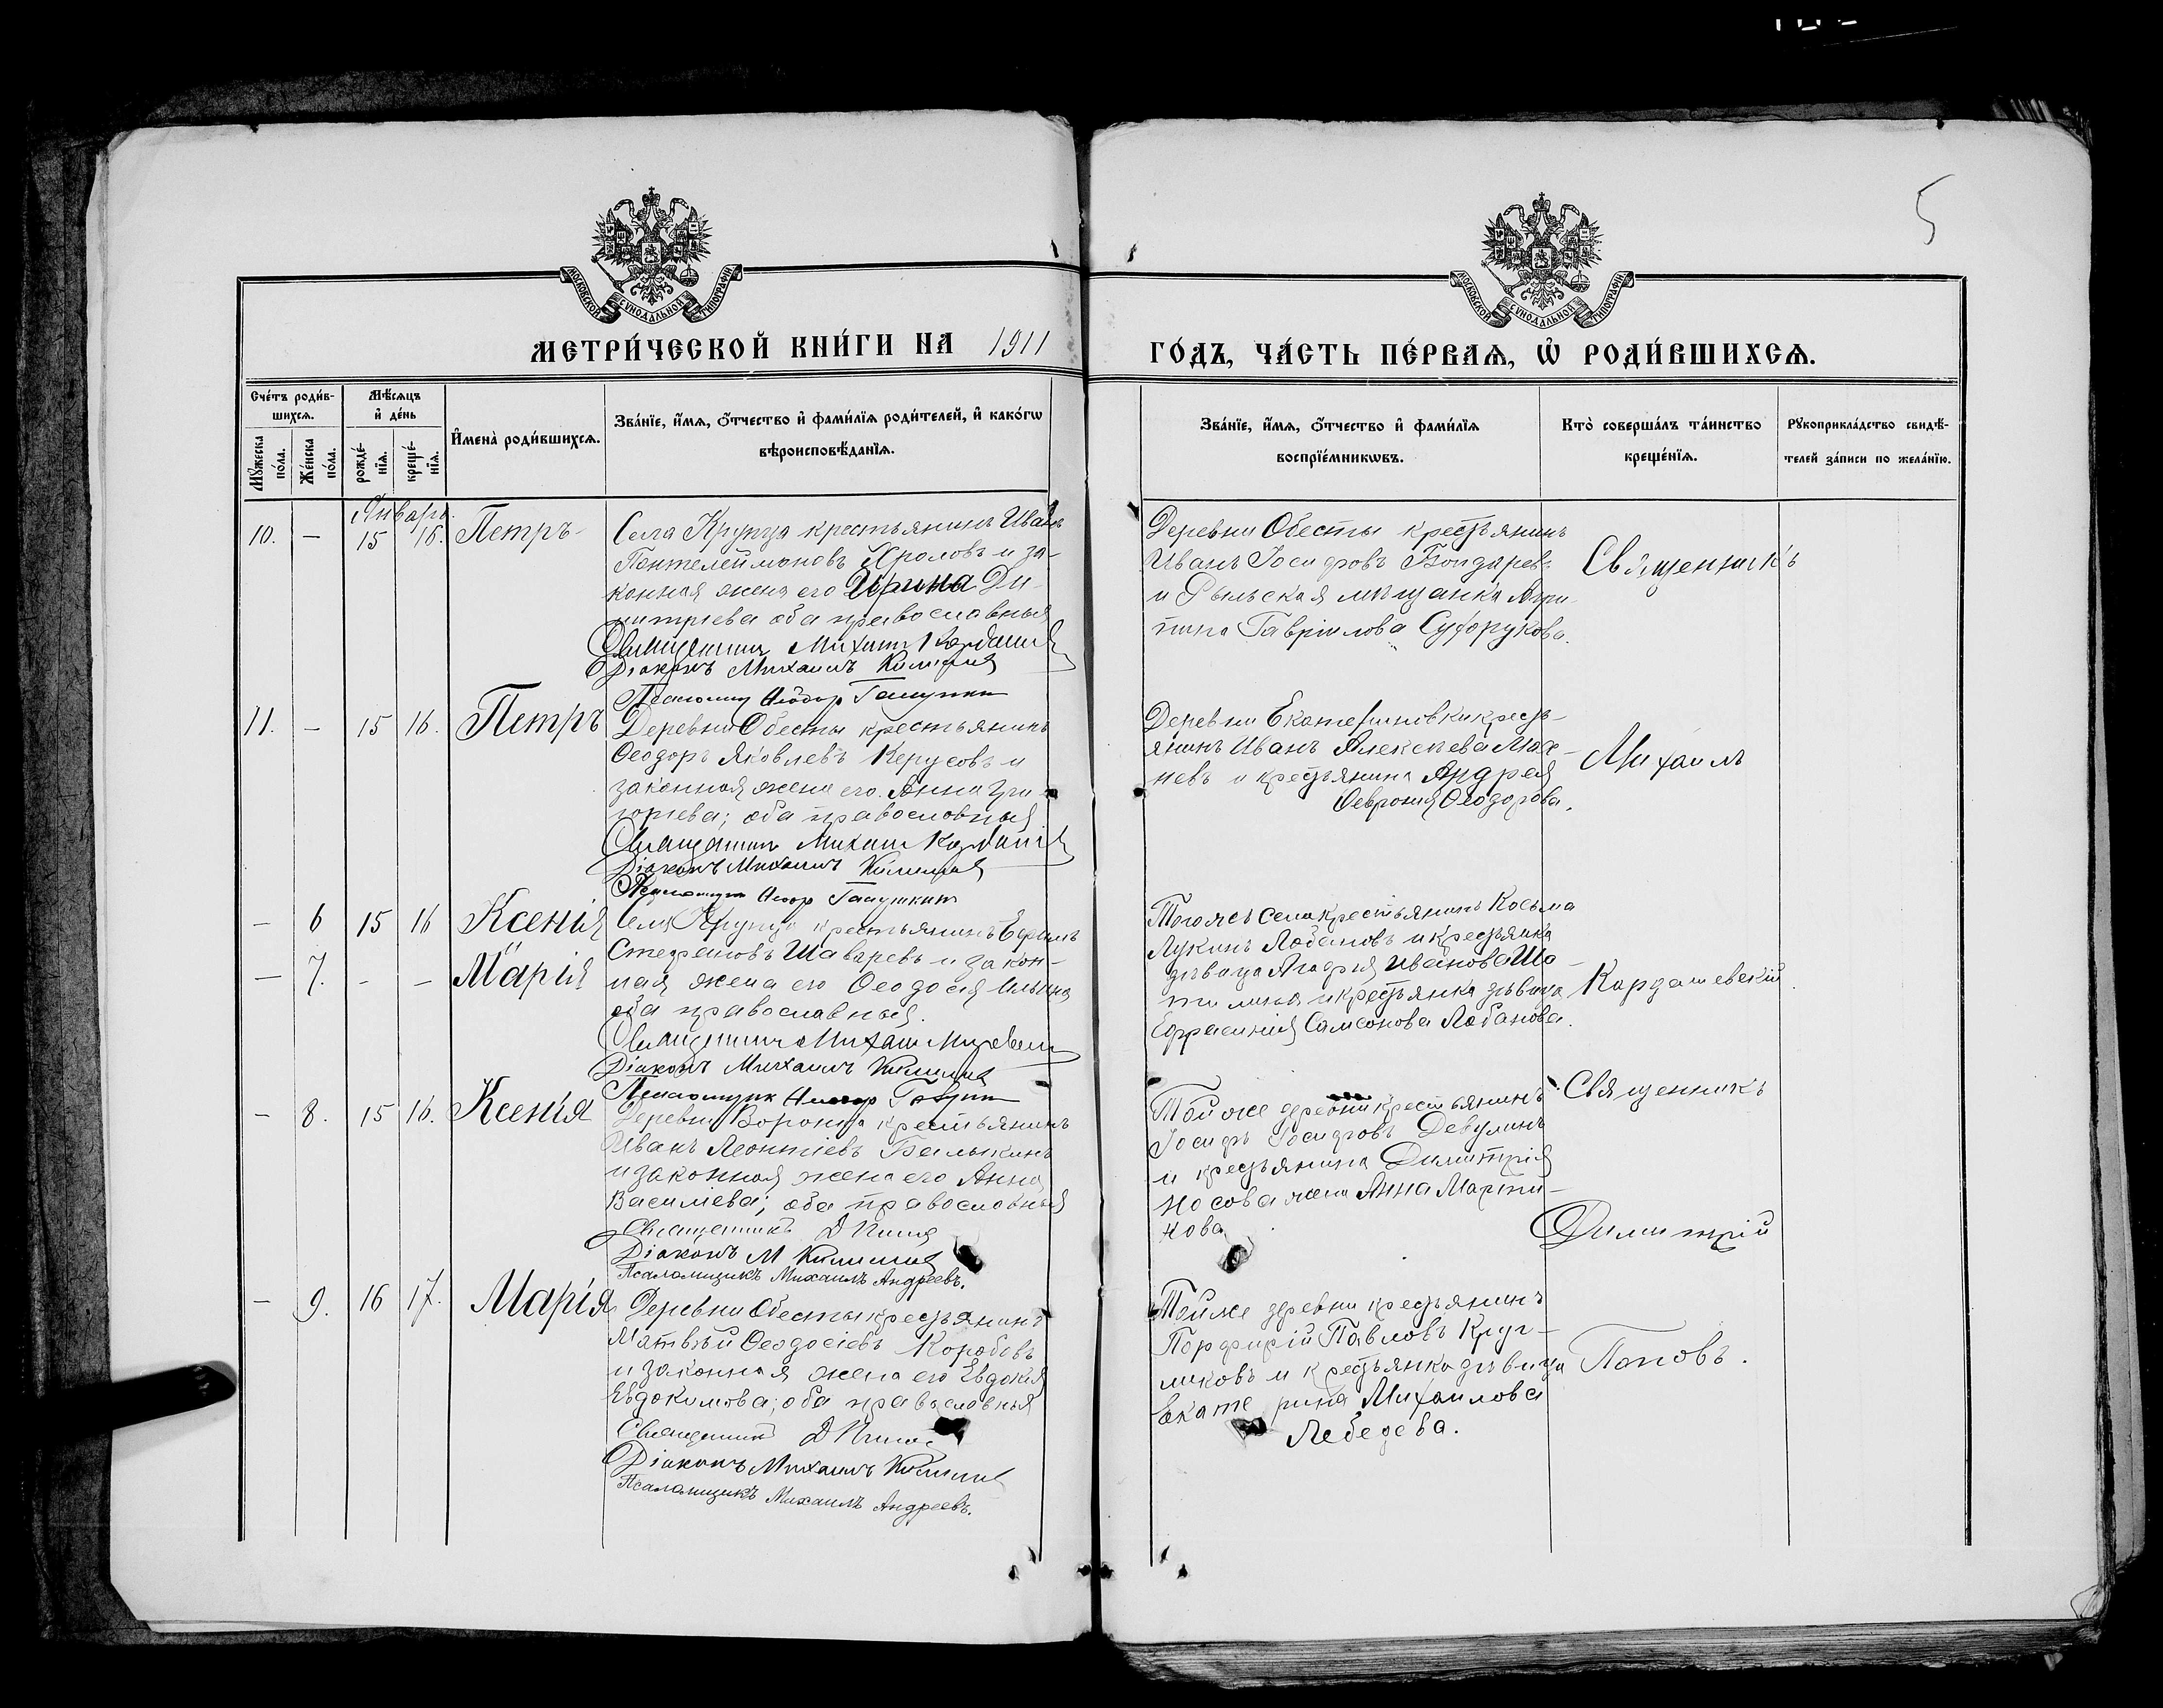 5
МОСКОВСКОЙ СУНОДАЛЬНОЙ ТИПОГРАФІИ
МОСКОВСКОЙ СУНОДАЛЬНОЙ ТИПОГРАФІИ
МЕТРИ́ЧЕСКОЙ КНИ́ГИ НА 1911
ГО́ДЪ, ЧА́СТЬ ПЕ́РВАѦ, Ѡ҆ РОДИ́ВШИХСѦ.
Сче́тъ роди́в-
шихсѧ.
Мѣ́сѧцъ
и҆ де́нь
Мꙋ́жеска
по́ла.
Же́нска
по́ла.
рожде́-
нїѧ.
креще́-
нїѧ.
И҆мена̀ роди́вшихсѧ.
Зва́нїе, и҆́мѧ, ѻ҆́тчество и҆ фами́лїѧ роди́телей, и҆ како́гѡ
вѣроисповѣ́данїѧ.
Зва́нїе, и҆́мѧ, ѻ҆́тчество и҆ фами́лїѧ
воспрїе́мникѡвъ.
Кто̀ соверша́лъ та́инство
креще́нїѧ.
Рꙋкоприкла́дство свидѣ́-
телей за́писи по жела́нїю.
Январь.
10. — 15 16. Петръ
Села Крупца крестьянинъ Иванъ
Пантелеймоновъ Фроловъ и за-
конная жена его Ирина Ди-
митріева оба православныя
Священникъ Михаилъ
Діаконъ Михаилъ
Псаломщ
Деревни Обесты крестьянинъ
Иванъ Іосифовъ Бондарев
и Рыльская мѣщанка Агри-
пина Гавріилова Сухорукова.
Священникъ
11. — 15 16. Петръ
Деревни Обесты крестьянинъ
Ѳеодоръ Яковлевъ Керусовъ и
законная жена его Анна Гри-
горьева; оба православныя
Священникъ Михаилъ
Діаконъ Михаилъ
Деревни Екатериновки кресть-
янинъ Иванъ Алексѣева Мах-
невъ и крестьянина Андрея
Ѳеврония Ѳеодорова.
Михаилъ
— 6 15 16 Ксенія
— 7. — — Марія
Села Крупца крестьянинъ Ефимъ
Стефановъ Шаваревъ и закон-
ная жена его Ѳеодосія Ильина
оба православныя.
Священникъ Михаилъ
Діаконъ Михаилъ
Псаломщик
Того же села крестьянинъ Косьма
Лукинъ Лобановъ и крестьянка
дѣвица Агафія Иванова Ша-
и крестьянка дѣвица
Ефрасинія Самсонова Лобанова.
Кардашевскій.
— 8. 15 16. Ксенія
Деревни Воронка крестьянинъ
Иванъ Леонтіевъ Балыкинъ
и законная жена его Анна
Василіева; оба православныя
Священникъ Д
Діаконъ М
Псаломщикъ Михаилъ Андреевъ.
Той же деревни крестьянинъ
Іосифъ Іосифовъ Девулинъ
и крестьянина Димитрія
Носова жена Анна Марти-
нова
Священникъ
Димитрій
— 9. 16 17. Марія
Деревни Обесты крестьянинъ
Матвѣй Ѳеодосіевъ Коробовъ
и законная жена его Евдокія
Евдокимова; оба православныя
Священникъ Д
Діаконъ Михаилъ
Псаломщикъ Михаилъ Андреевъ.
Той же деревни крестьянинъ
Порфирій Павловъ Круг-
ликовъ и крестьянка дѣвица
Екате рина Михаилова
Лебедева.
Поповъ.